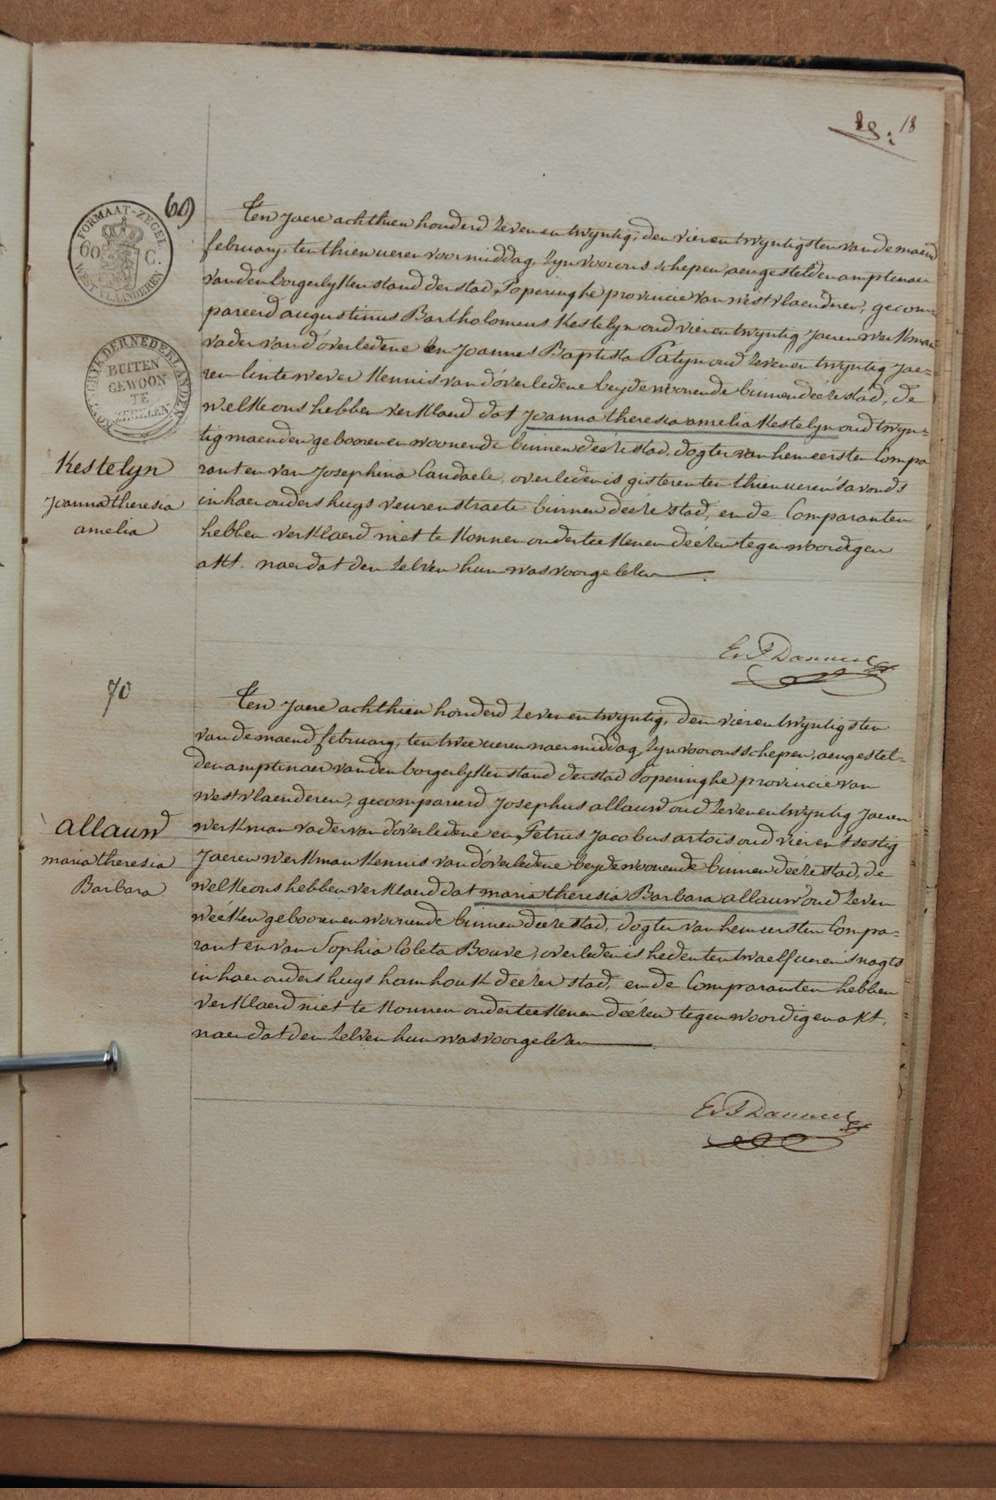 18
69
FORMAAT-ZEGEL
60 C.
WEST VLAANDEREN
KONINGRYK DER NEDERLANDEN
BUITEN
GEWOON
TE
ZEGELEN
Kestelyn
Joanna theresia
amelia
Ten Jaere achthien honderd zeven en twyntig, den vier en twyntigsten van de maend
february, ten thien ueren voormiddag, zyn voor ons schepen, aengestelden amptenaer
van den borgerlyken stand der stad Poperinghe provincie van westvlaenderen, gecom-
pareerd augustinus Bartholomeus Kestelyn oud vier en twyntig Jaeren werkman
vader van d'overledene en Joannes Baptista Patyn oud zeven en twyntig Jae-
ren lintewever Kennis van d'overledene beyde woonende binnen deéze stad, de
welke ons hebben verklaerd dat Joanna theresia amelia Kestelyn oud twyn-
tig maenden gebooren en woonende binnen deeze stad, dogter van hem eersten Compa
rant en van Josephina Candaele, overleden is gisteren ten thien ueren s'avonds
in haer ouders huys veurenstraete binnen deéze stad, en de Comparanten
hebben verklaerd niet te konnen onderteekenen deézen tegenwoordigen
akt. naer dat den zelven hun was voorgelezen.
70
allauw
maria theresia
Barbara
Ten Jaere achthien honderd zeven en twyntig, den vier en twyntigsten
van de maend february, ten twee ueren naermiddag, zyn voor ons schepen, aengestel-
den amptenaer van den borgerlyken stand der stad Poperinghe provincie van
westvlaenderen, gecompareerd Josephus allauw oud zeven en twyntig Jaeren
werkman vader van d'overledene en Petrus Jacobus artois oud vier en t'sestig
Jaeren werkman Kennis van d'overledene beyde woonende binnen deéze stad, de
welke ons hebben verklaerd dat maria theresia Barbara allauw oud zeven
weéken gebooren en woonende binnen deeze stad, dogter van hem eersten Compa-
rant en van Sophia Coleta Bouve, overleden is heden ten twaelf ueren s'nagts
in haer ouders huys hamhouk deézer stad, en de Comparanten hebben
verklaerd niet te konnen onderteekenen deézen tegenwoordigen akt,
naer dat den zelven hun was voorgelezen.